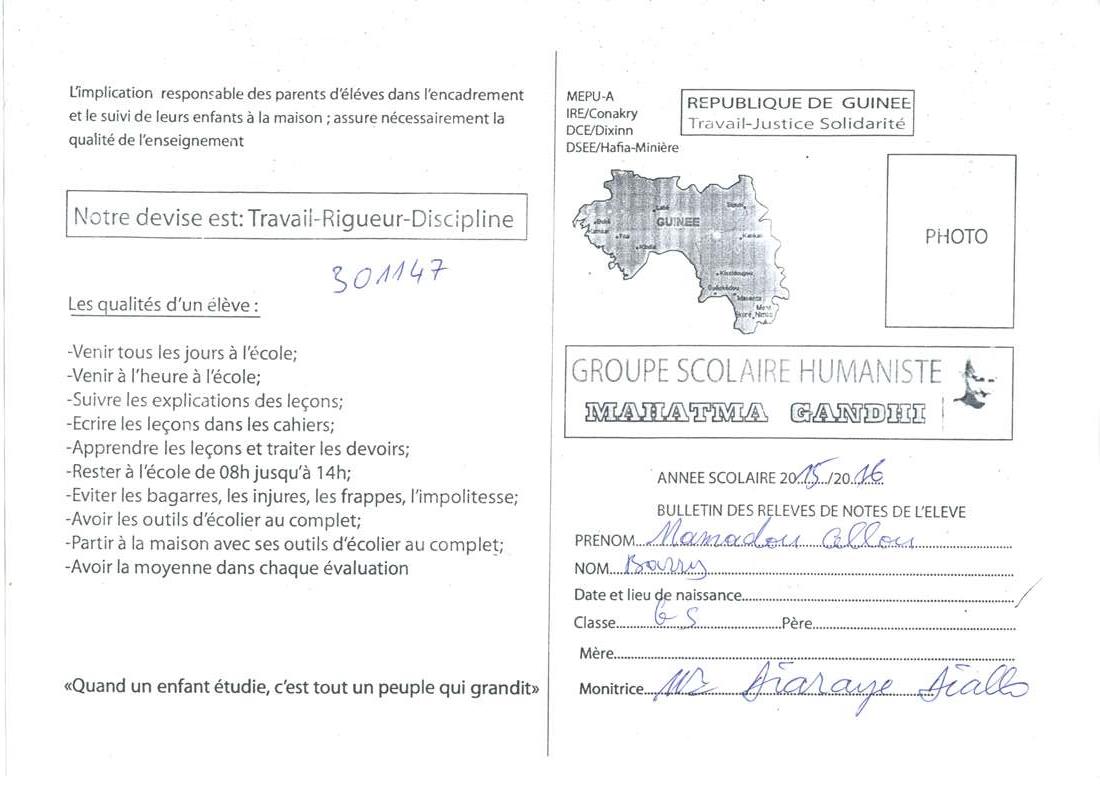 L'implication responsable des parents d'éléves dans l'encadrement
et le suivi de leurs enfants à la maison ; assure nécessairement la
qualité de l'enseignement
Notre devise est: Travail-Rigueur-Discipline
301147
Les qualités d'un élève :
-Venir tous les jours à l'école;
-Venir à l'heure à l'école;
-Suivre les explications des leçons;
-Ecrire les leçons dans les cahiers;
-Apprendre les leçons et traiter les devoirs;
-Rester à l'école de 08h jusqu'à 14h;
-Eviter les bagarres, les injures, les frappes, l'impolitesse;
-Avoir les outils d'écolier au complet;
-Partir à la maison avec ses outils d'écolier au complet;
-Avoir la moyenne dans chaque évaluation
«Quand un enfant étudie, c'est tout un peuple qui grandit»
MEPU-A
IRE/Conakry
DCE/Dixinn
DSEE/Hafia-Minière
REPUBLIQUE DE GUINEE
Travail-Justice Solidarité
PHOTO
GUINEE
Labé
Kankan
Kindia
Kissidougou
Guékédou
Macenta
GROUPE SCOLAIRE HUMANISTE
MAHATMA GANDHI
ANNEE SCOLAIRE 2015/2016
BULLETIN DES RELEVES DE NOTES DE L'ELEVE
PRENOM Mamadou
NOM Barry
Date et lieu de naissance
Classe GS Père
Mère
Monitrice Diaraye Diallo